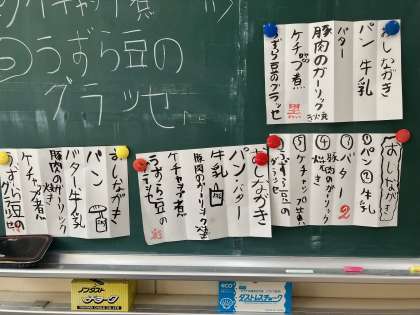 ケチャップ煮
⑤うずら豆の
グラッセ
おしながき
パン 牛乳
バター
豚肉のガーリック
ケチャプ煮
うずら豆のグラッセ
おしながき
①パン ②牛乳
③バター 2
④豚肉のガーリック
焼き
⑤ケチャップ煮
うずら豆の
グラッセ
おしながき
パン・バター
牛乳
豚肉のガーリック焼
ケチャップ煮
うずら豆の
グラッセ
おしながき
パン
バター牛乳
豚肉のガーリック
焼き
ケチャプ煮
うずら豆の
グラッセ
ノンダスト
eco
ダストレスチョーク